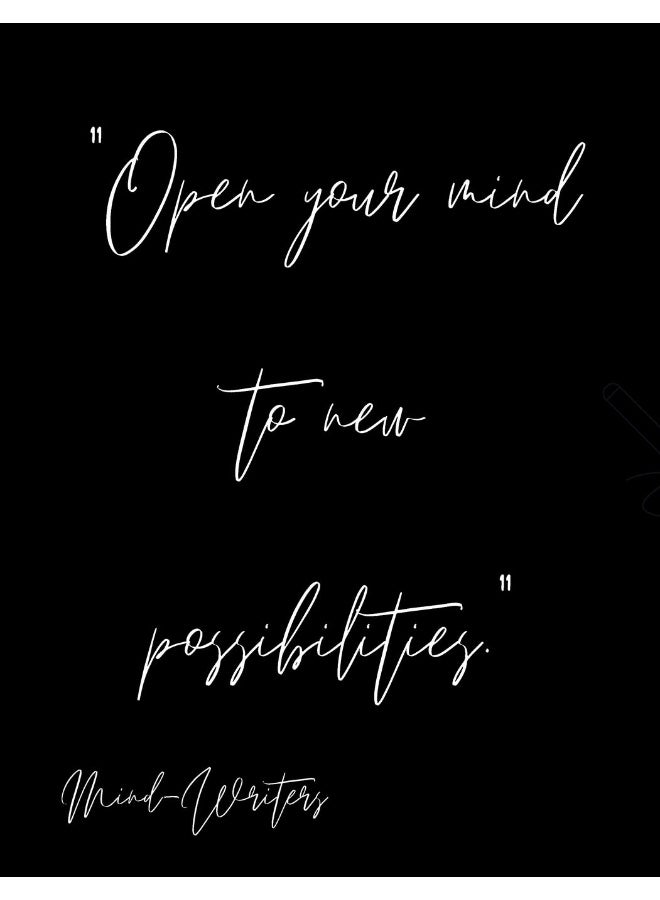 "Open your mind
to new
possibilities."
Mind-Writers